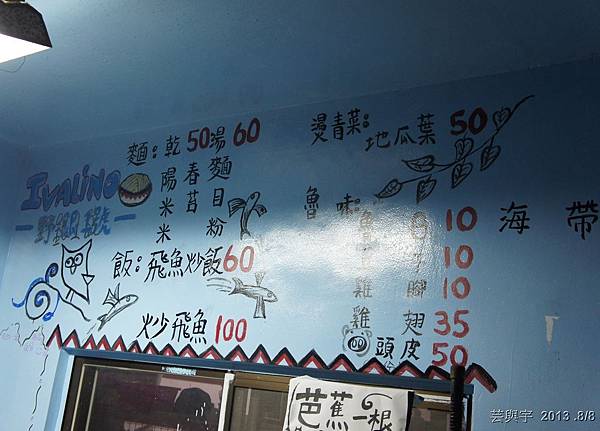 IVALINO
野銀
麵：乾50湯60
陽春麵
米苔目
米粉
飯：飛魚炒飯60
炒飛魚100
燙青菜：
地瓜葉50
魯味：
10 海帶
10
雞腳10
雞翅35
頭皮50
芭蕉一根
芸與宇 2013.8/8